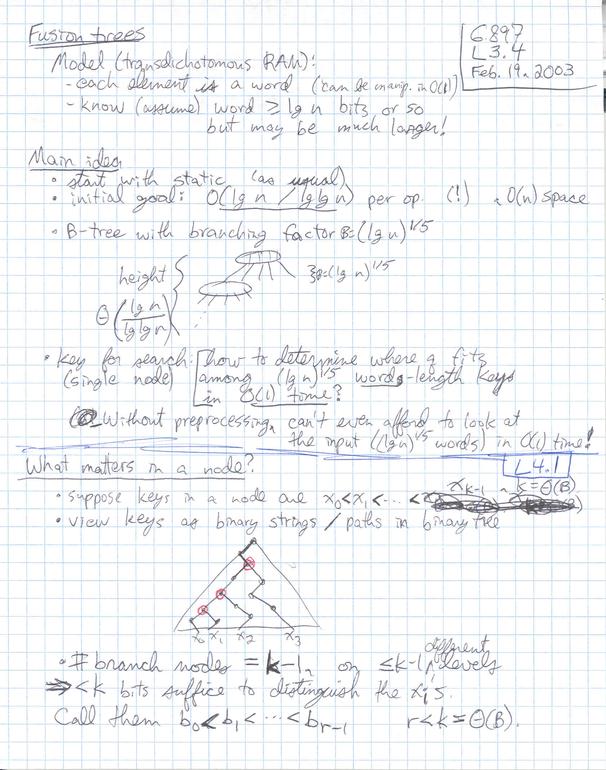 Fusion trees
6.897
L3.4
Feb. 19, 2003
Model (transdichotomous RAM):
- each element is a word (can be manip. in O(1))
- know (assume) word ≥ lg n bits or so
but may be much larger!
Main idea
• start with static (as usual)
• initial goal: O(lg n / lg lg n) per op. (!) , O(n) space
• B-tree with branching factor B=(lg n)^1/5
height
Θ(lg n / lg lg n)
}B=(lg n)^1/5
• key for search: how to determine where q fits
(single node) among (lg n)^1/5 word-length keys
in O(1) time?
Without preprocessing, can't even afford to look at
the input ((lg n)^1/5 words) in O(1) time!
What matters in a node?
L4.1
• suppose keys in a node are x0<x1<···<xk-1, k=Θ(B)
• view keys as binary strings / paths in binary tree
x0 x1 x2 x3
• # branch nodes = k-1, on ≤k-1 different levels
⇒ <k bits suffice to distinguish the xi's.
Call them b0<b1<···<br-1 r<k=Θ(B).